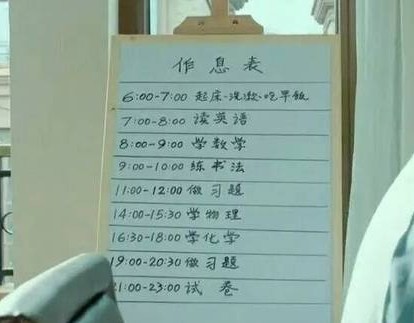 作息表
6:00-7:00 起床·洗漱·吃早饭
7:00-8:00 读英語
8:00-9:00 学数学
9:00-10:00 练书法
11:00-12:00 做习题
14:00-15:30 学物理
16:30-18:00 学化学
19:00-20:30 做习题
21:00-23:00 试卷